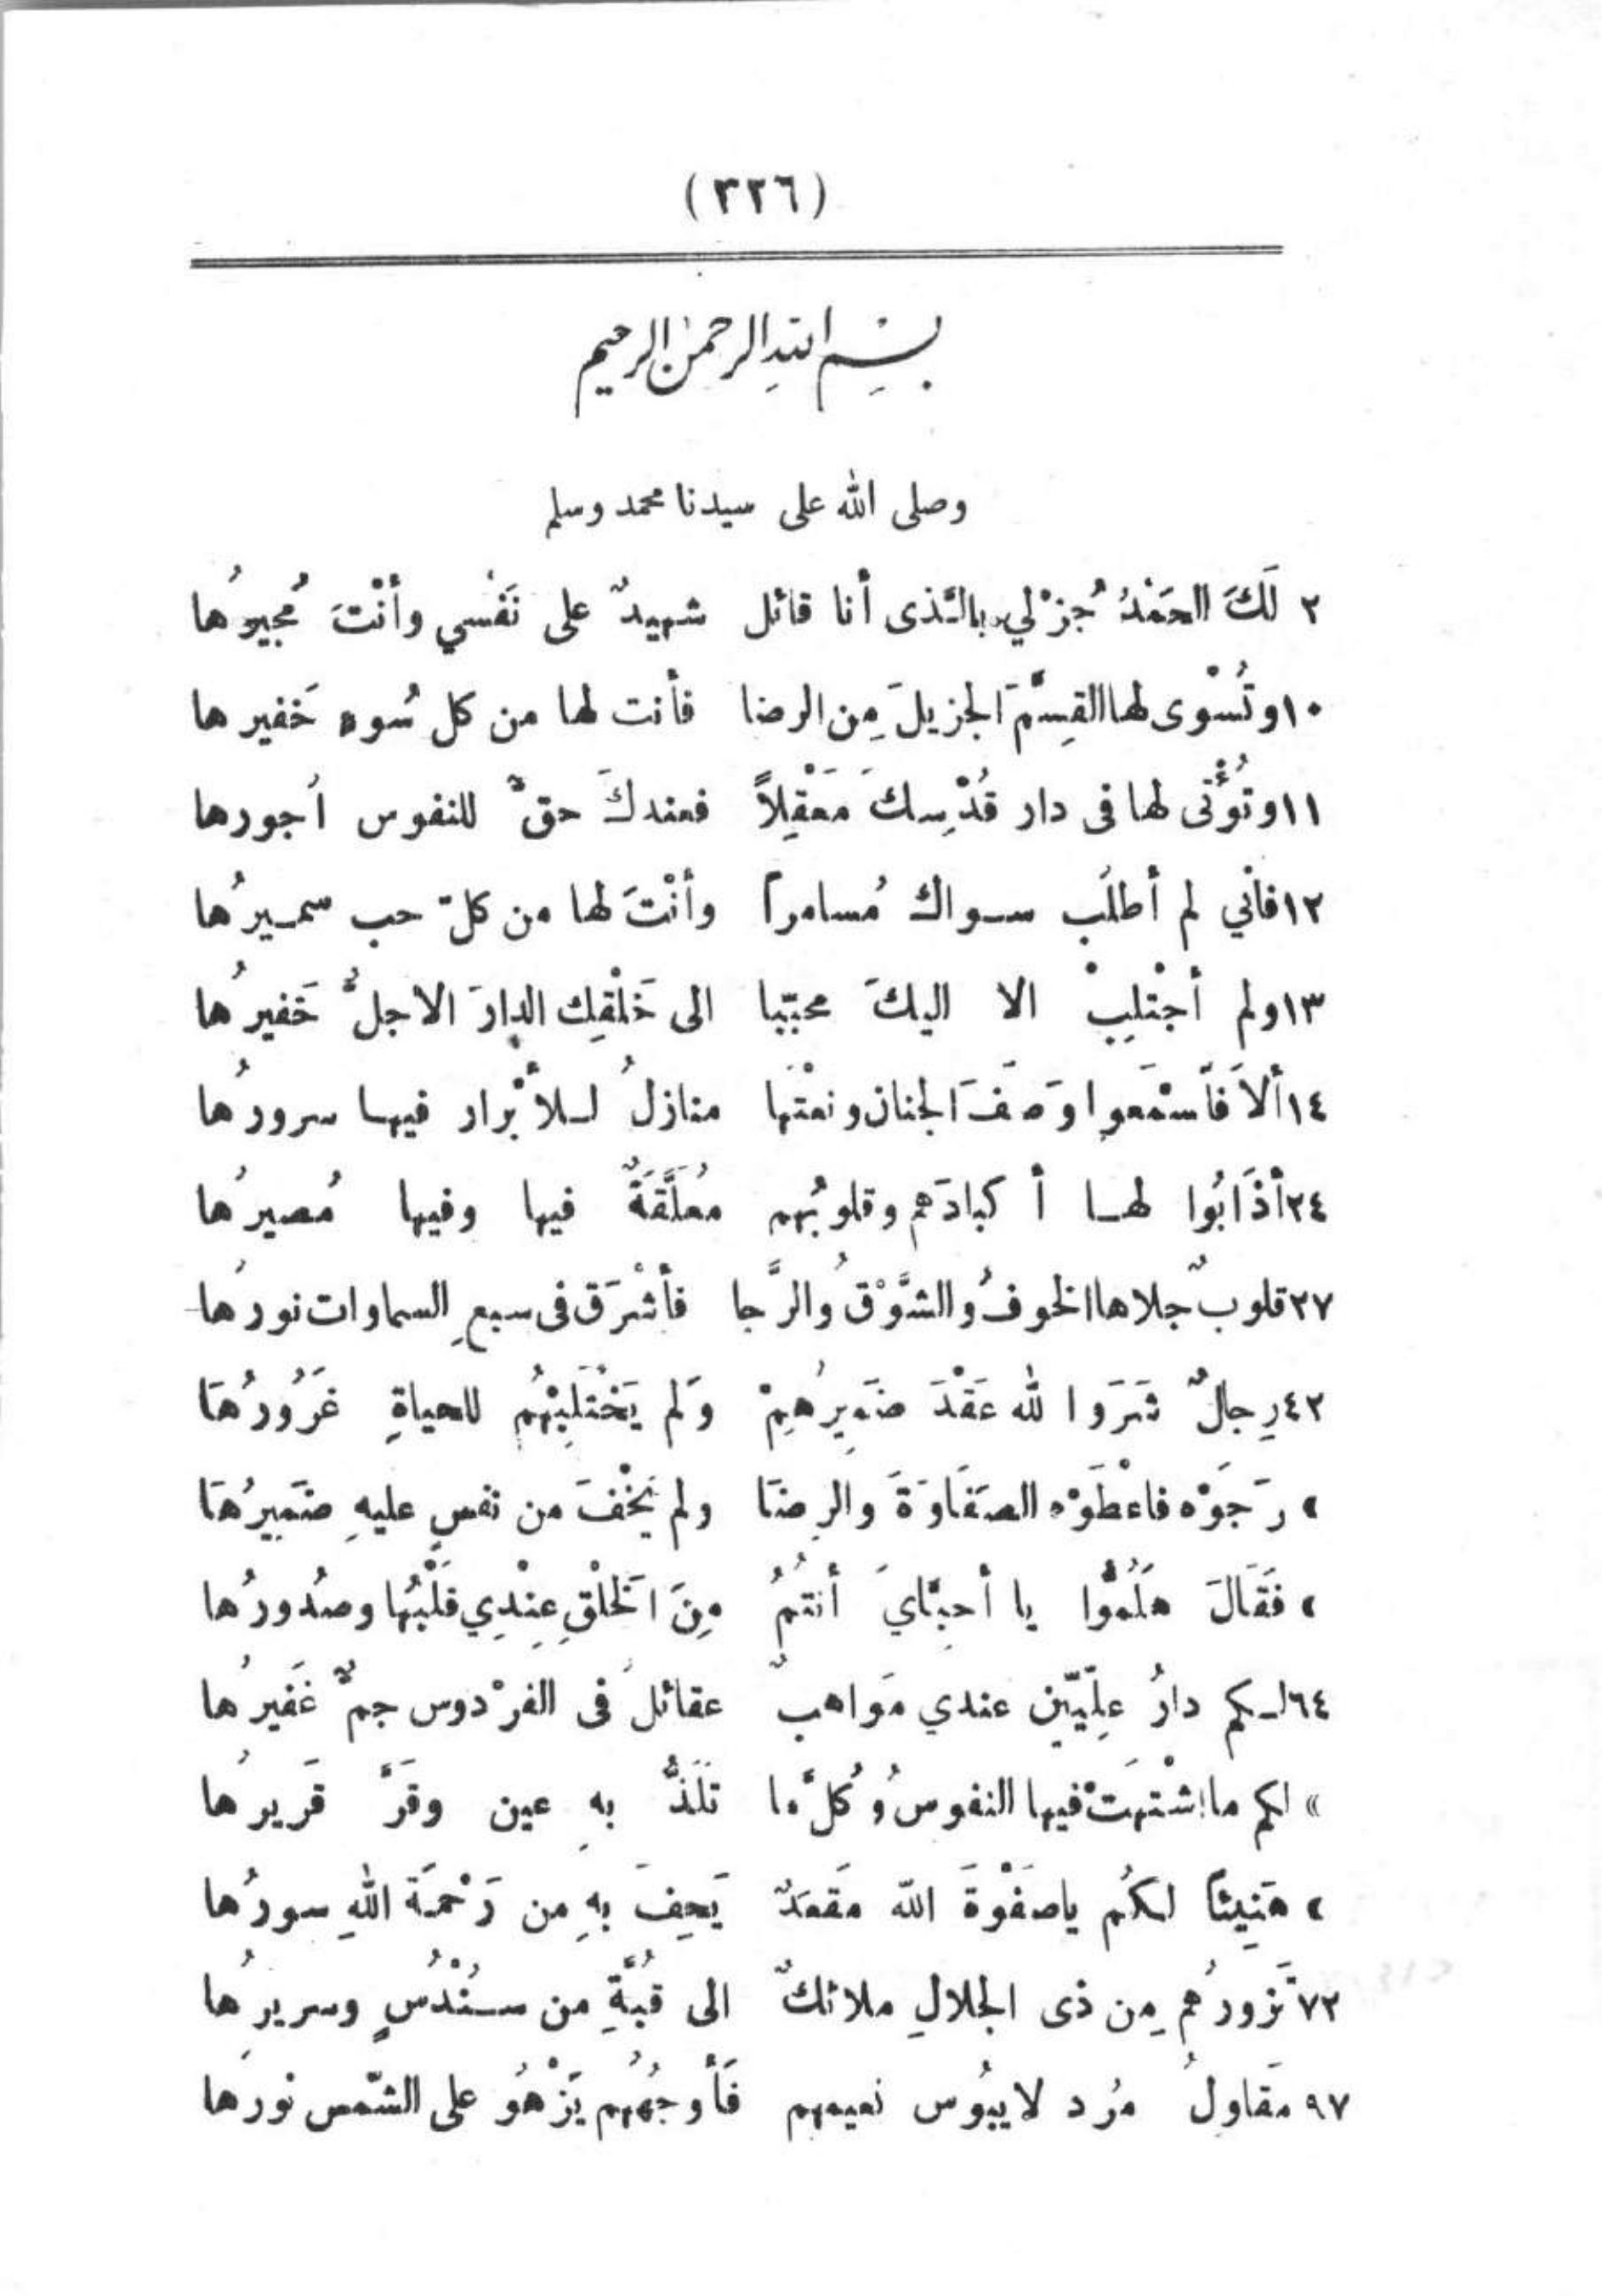 (٣٢٦)
بسم الله الرحمن الرحيم
وصلى الله على سيدنا محمد وسلم
٢ لَكَ الحَمْدُ جُزْلي بالَّذى أنا قائل شهيدٌ على نَفْسي وأنْتَ مُجيرُها
١٠ وتُسْوى لها القِسْمَ الجزيلَ مِن الرضا فأنت لها من كل سُوء خَفيرها
١١ وتُؤْتى لها فى دار قُدْسِكَ مَعْقِلاً فعندكَ حقٌّ للنفوس أجورها
١٢ فأني لم أطلُب سـواك مُسامرا وأنْتَ لها من كلّ حب سمـيرُها
١٣ ولم أجْتلِبْ الا اليكَ محبّبا الى خَلْقِك الدارَ الاجلُّ خَفيرُها
١٤ ألاَ فَاَسْمَعوا وَصَفَ الجنان ونعْتَها منازلُ لـلأبْرار فيهـا سرورُها
٢٤ أذَابُوا لهـا أ كبادَهم وقلوبُهم مُعَلَّقَةٌ فيها وفيها مُصيرُها
٢٧ قلوبٌ جلاها الخوفُ والشَّوْقُ والرَّجا فأشْرَق فى سبعِ السماوات نورُها
٤٢ رِجالٌ شَرَوا لله عَقْدَ ضَمِيرِهِمْ وَلم يَخْتَلِبْهُم للحياةِ غَرُورُهَا
» رَجَوْه فاعْطَوْه الصَفَاوَةَ والرِضَا ولم يَخْفَ من نفسٍ عليهِ ضَمِيرُهَا
» فَقَالَ هَلَمُّوا يا أحِبَّايَ أنتُمُ مِنَ الخَلْقِ عِنْدِي قَلْبُها وصُدورُها
٦٤ لـكم دارُ عِلِيّين عندي مَواهبٌ عقائلُ فى الفرْدوس جمٌّ غَفيرُها
» لكم ما اشْتهَتْ فيها النفوسُ وكُلَّما تَلَذُّ بهِ عين وقَرَّ قَريرُها
» هَنِيئاً لكُم ياصَفْوَةَ الله مَقعَدٌ يَحِفَ بهِ من رَحْمَة اللهِ سورُها
٧٢ تَزورُهم مِن ذى الجلالِ ملائكٌ الى قُبَّةِ من سـنْدُسٍ وسريرِها
٩٧ مَقاولُ مُرد لايبُوس نعيمهم فَأوجُهُهم يَزْهُو على الشّمس نورها